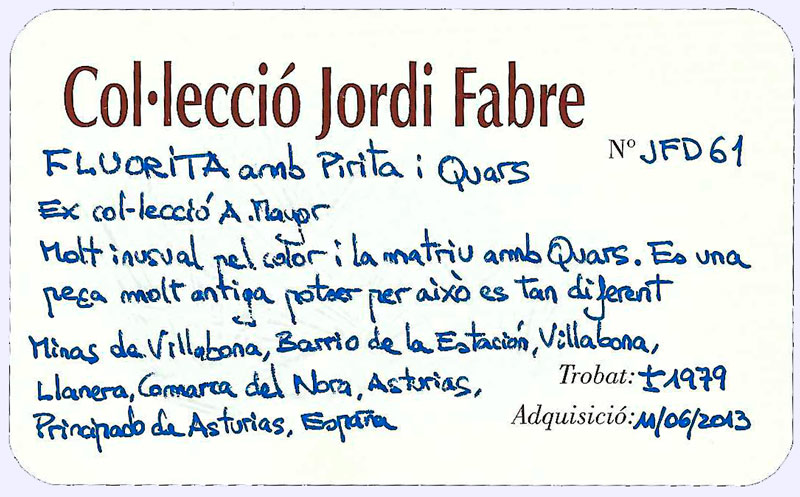 Col·lecció Jordi Fabre
Nº JFD61
FLUORITA amb Pirita i Quars
Ex col·lecció A. Mayor
Molt inusual pel color i la matriu amb Quars. Es una
peça molt antiga potser per això es tan diferent
Minas de Villabona, Barrio de la Estación, Villabona,
Llanera, Comarca del Nora, Asturias,
Trobat: ±1979
Principado de Asturias, España
Adquisició: 11/06/2013